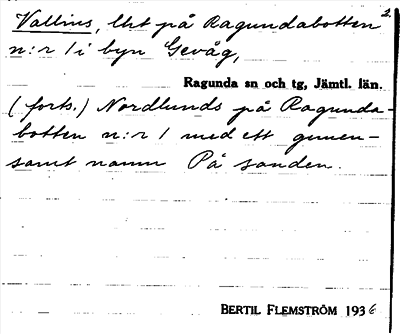 2.
Vallius, lht på Ragundabotten
n:r 1 i byn Gevåg,
Ragunda sn och tg, Jämtl. län.
(forts.) Nordlunds på Ragunda-
botten n:r 1 med ett gemen-
samt namn På sanden.
BERTIL FLEMSTRÖM 1936